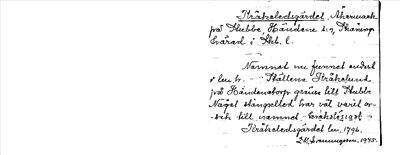 Kråkeledsgärdet. Åkermark
på Stubbe, Händene sn, Skånings
härad i Skb. l.
Namnet nu funnet endast
i lm.br. - Ställena Kråkelund
på Händenatorp gräns till Stubbe
Något stängselled har väl varit or-
sak till namnet
Kråkeledsgärdet lm. 1796.
1945.